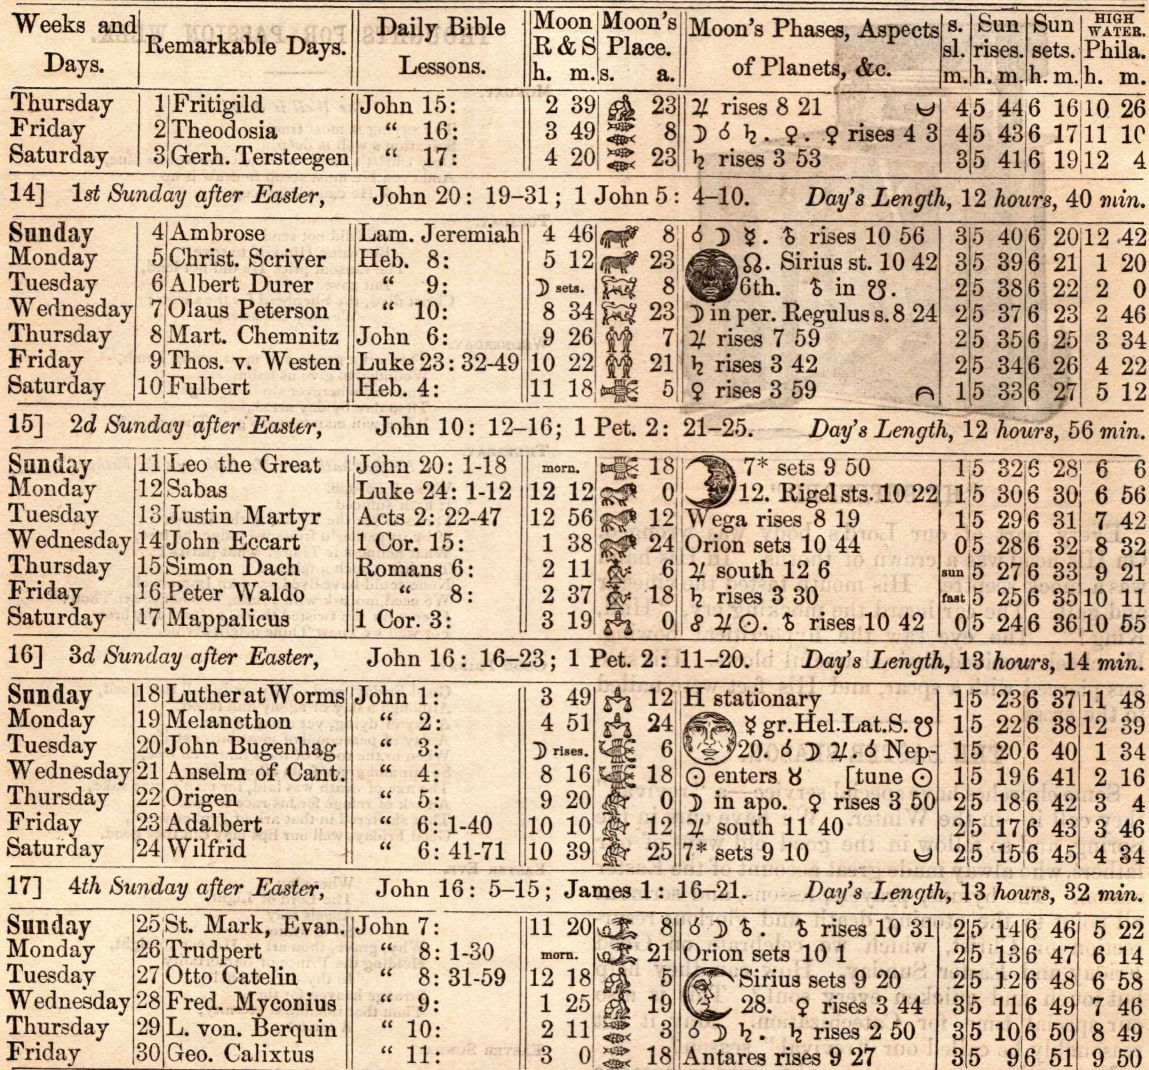 Weeks and Days. | Remarkable Days. | Daily Bible Lessons. | Moon R & S h. m. | Moon's Place. s. a. | Moon's Phases, Aspects of Planets, &c. | s. sl. m. | Sun rises. h. m. | Sun sets. h. m. | HIGH WATER. Phila. h. m.
Thursday 1 Fritigild John 15: 2 39 23 ♃ rises 8 21 4 5 44 6 16 10 26
Friday 2 Theodosia “ 16: 3 49 8 ☽ ☌ ♄. ♀. ♀ rises 4 3 4 5 43 6 17 11 10
Saturday 3 Gerh. Tersteegen “ 17: 4 20 23 ♄ rises 3 53 3 5 41 6 19 12 4
14] 1st Sunday after Easter, John 20: 19–31; 1 John 5: 4–10. Day's Length, 12 hours, 40 min.
Sunday 4 Ambrose Lam. Jeremiah 4 46 8 ☌ ☽ ☿. ♁ rises 10 56 3 5 40 6 20 12 42
Monday 5 Christ. Scriver Heb. 8: 5 12 23 ☊. Sirius st. 10 42 3 5 39 6 21 1 20
Tuesday 6 Albert Durer “ 9: ☽ sets. 8 6th. ♁ in ☋. 2 5 38 6 22 2 0
Wednesday 7 Olaus Peterson “ 10: 8 34 23 ☽ in per. Regulus s. 8 24 2 5 37 6 23 2 46
Thursday 8 Mart. Chemnitz John 6: 9 26 7 ♃ rises 7 59 2 5 35 6 25 3 34
Friday 9 Thos. v. Westen Luke 23: 32-49 10 22 21 ♄ rises 3 42 2 5 34 6 26 4 22
Saturday 10 Fulbert Heb. 4: 11 18 5 ♀ rises 3 59 1 5 33 6 27 5 12
15] 2d Sunday after Easter, John 10: 12–16; 1 Pet. 2: 21–25. Day's Length, 12 hours, 56 min.
Sunday 11 Leo the Great John 20: 1-18 morn. 18 7* sets 9 50 1 5 32 6 28 6 6
Monday 12 Sabas Luke 24: 1-12 12 12 0 12. Rigel sts. 10 22 1 5 30 6 30 6 56
Tuesday 13 Justin Martyr Acts 2: 22-47 12 56 12 Wega rises 8 19 1 5 29 6 31 7 42
Wednesday 14 John Eccart 1 Cor. 15: 1 38 24 Orion sets 10 44 0 5 28 6 32 8 32
Thursday 15 Simon Dach Romans 6: 2 11 6 ♃ south 12 6 sun 5 27 6 33 9 21
Friday 16 Peter Waldo “ 8: 2 37 18 ♄ rises 3 30 fast 5 25 6 35 10 11
Saturday 17 Mappalicus 1 Cor. 3: 3 19 0 ☍ ♃ ☉. ♁ rises 10 42 0 5 24 6 36 10 55
16] 3d Sunday after Easter, John 16: 16–23; 1 Pet. 2: 11–20. Day's Length, 13 hours, 14 min.
Sunday 18 Luther at Worms John 1: 3 49 12 H stationary 1 5 23 6 37 11 48
Monday 19 Melancthon “ 2: 4 51 24 ☿ gr. Hel. Lat. S. ☋ 1 5 22 6 38 12 39
Tuesday 20 John Bugenhag “ 3: ☽ rises. 6 20. ☌ ☽ ♃. ☌ Nep- 1 5 20 6 40 1 34
Wednesday 21 Anselm of Cant. “ 4: 8 16 18 ☉ enters ♉ [tune ☉ 1 5 19 6 41 2 16
Thursday 22 Origen “ 5: 9 20 0 ☽ in apo. ♀ rises 3 50 2 5 18 6 42 3 4
Friday 23 Adalbert “ 6: 1-40 10 10 12 ♃ south 11 40 2 5 17 6 43 3 46
Saturday 24 Wilfrid “ 6: 41-71 10 39 25 7* sets 9 10 2 5 15 6 45 4 34
17] 4th Sunday after Easter, John 16: 5–15; James 1: 16–21. Day's Length, 13 hours, 32 min.
Sunday 25 St. Mark, Evan. John 7: 11 20 8 ☌ ☽ ♁. ♁ rises 10 31 2 5 14 6 46 5 22
Monday 26 Trudpert “ 8: 1-30 morn. 21 Orion sets 10 1 2 5 13 6 47 6 14
Tuesday 27 Otto Catelin “ 8: 31-59 12 18 5 Sirius sets 9 20 2 5 12 6 48 6 58
Wednesday 28 Fred. Myconius “ 9: 1 25 19 28. ♀ rises 3 44 3 5 11 6 49 7 46
Thursday 29 L. von. Berquin “ 10: 2 11 3 ☌ ☽ ♄. ♄ rises 2 50 3 5 10 6 50 8 49
Friday 30 Geo. Calixtus “ 11: 3 0 18 Antares rises 9 27 3 5 9 6 51 9 50